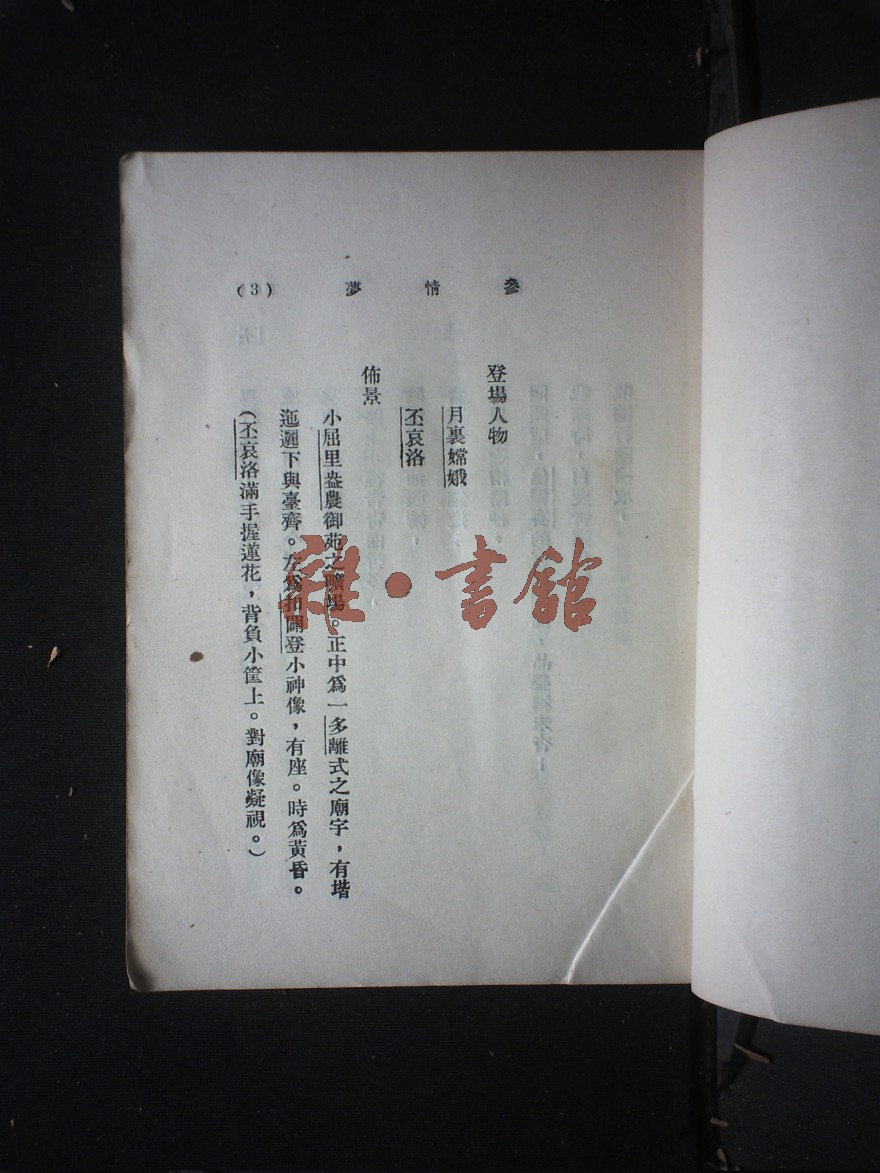 參情夢
(3)
登場人物
月裏嫦娥
丕哀洛
佈景
小屈里盎農御苑之曠場。正中爲一多離式之廟宇，有堦
迤邐下與臺齊。左爲扣闢登小神像，有座。時爲黃昏。
(丕哀洛滿手握蓮花，背負小筐上。對廟像凝視。)
雜·書館